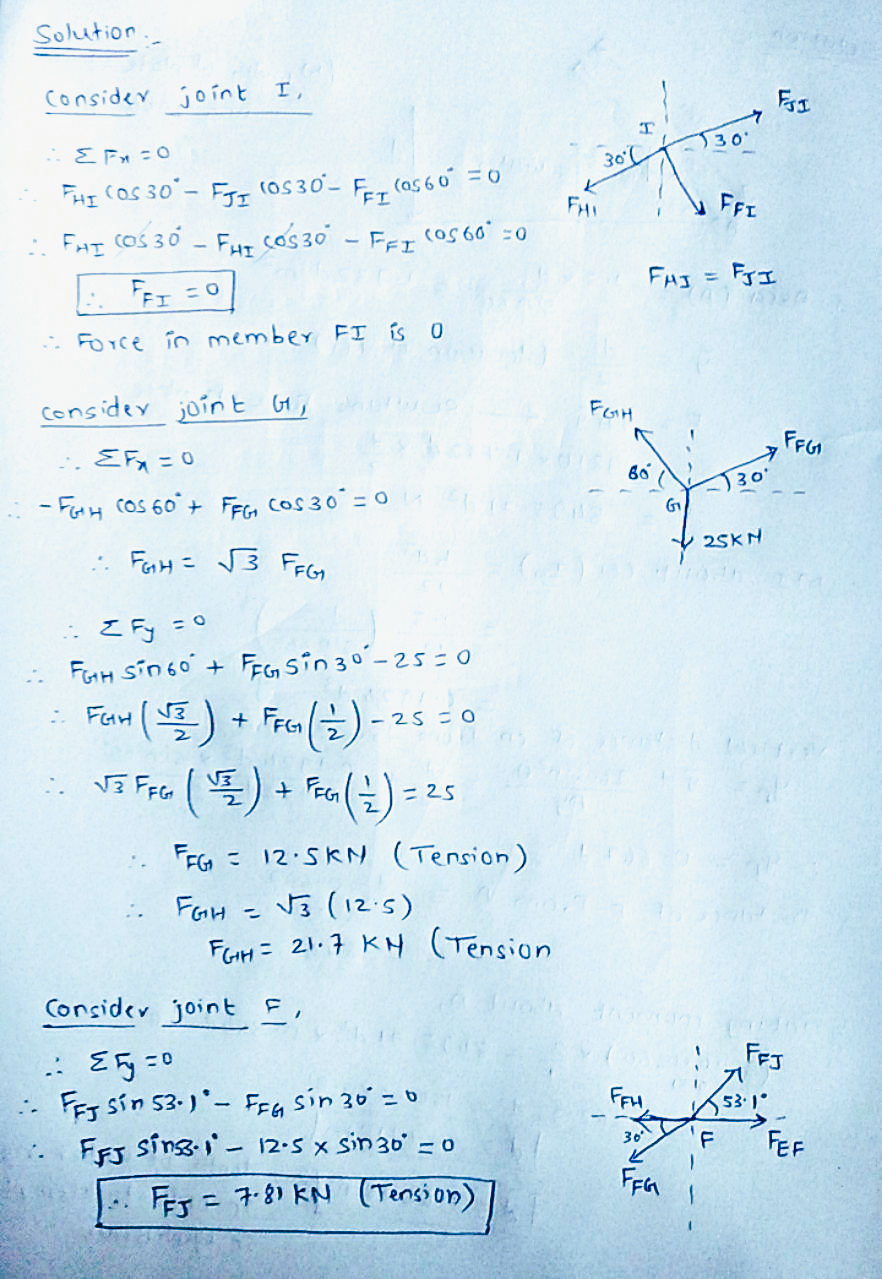 Solution :-
Consider joint I,
∴ ΣFx = 0
∴ FHI cos 30° - FJI cos 30° - FFI cos 60° = 0
∴ FHI cos 30 - FHI cos 30° - FFI cos 60° = 0
∴ FFI = 0
∴ Force in member FI is 0
I
FJI
30°
30°
FHI
FFI
FHI = FJI
consider joint G,
∴ ΣFx = 0
∴ - FGH cos 60° + FFG cos 30° = 0
∴ FGH = √3 FFG
∴ ΣFy = 0
∴ FGH sin 60° + FFG sin 30° - 25 = 0
∴ FGH (√3/2) + FFG (1/2) - 25 = 0
∴ √3 FFG (√3/2) + FFG (1/2) = 25
∴ FFG = 12.5 KN (Tension)
∴ FGH = √3 (12.5)
FGH = 21.7 KN (Tension
FGH
FFG
60°
30°
G
25KN
Consider joint F,
∴ ΣFy = 0
∴ FFJ sin 53.1° - FFG sin 30° = 0
∴ FFJ sin 53.1° - 12.5 x sin 30° = 0
∴ FFJ = 7.81 KN (Tension)
FFJ
FFH
53.1°
30°
F
FEF
FFG